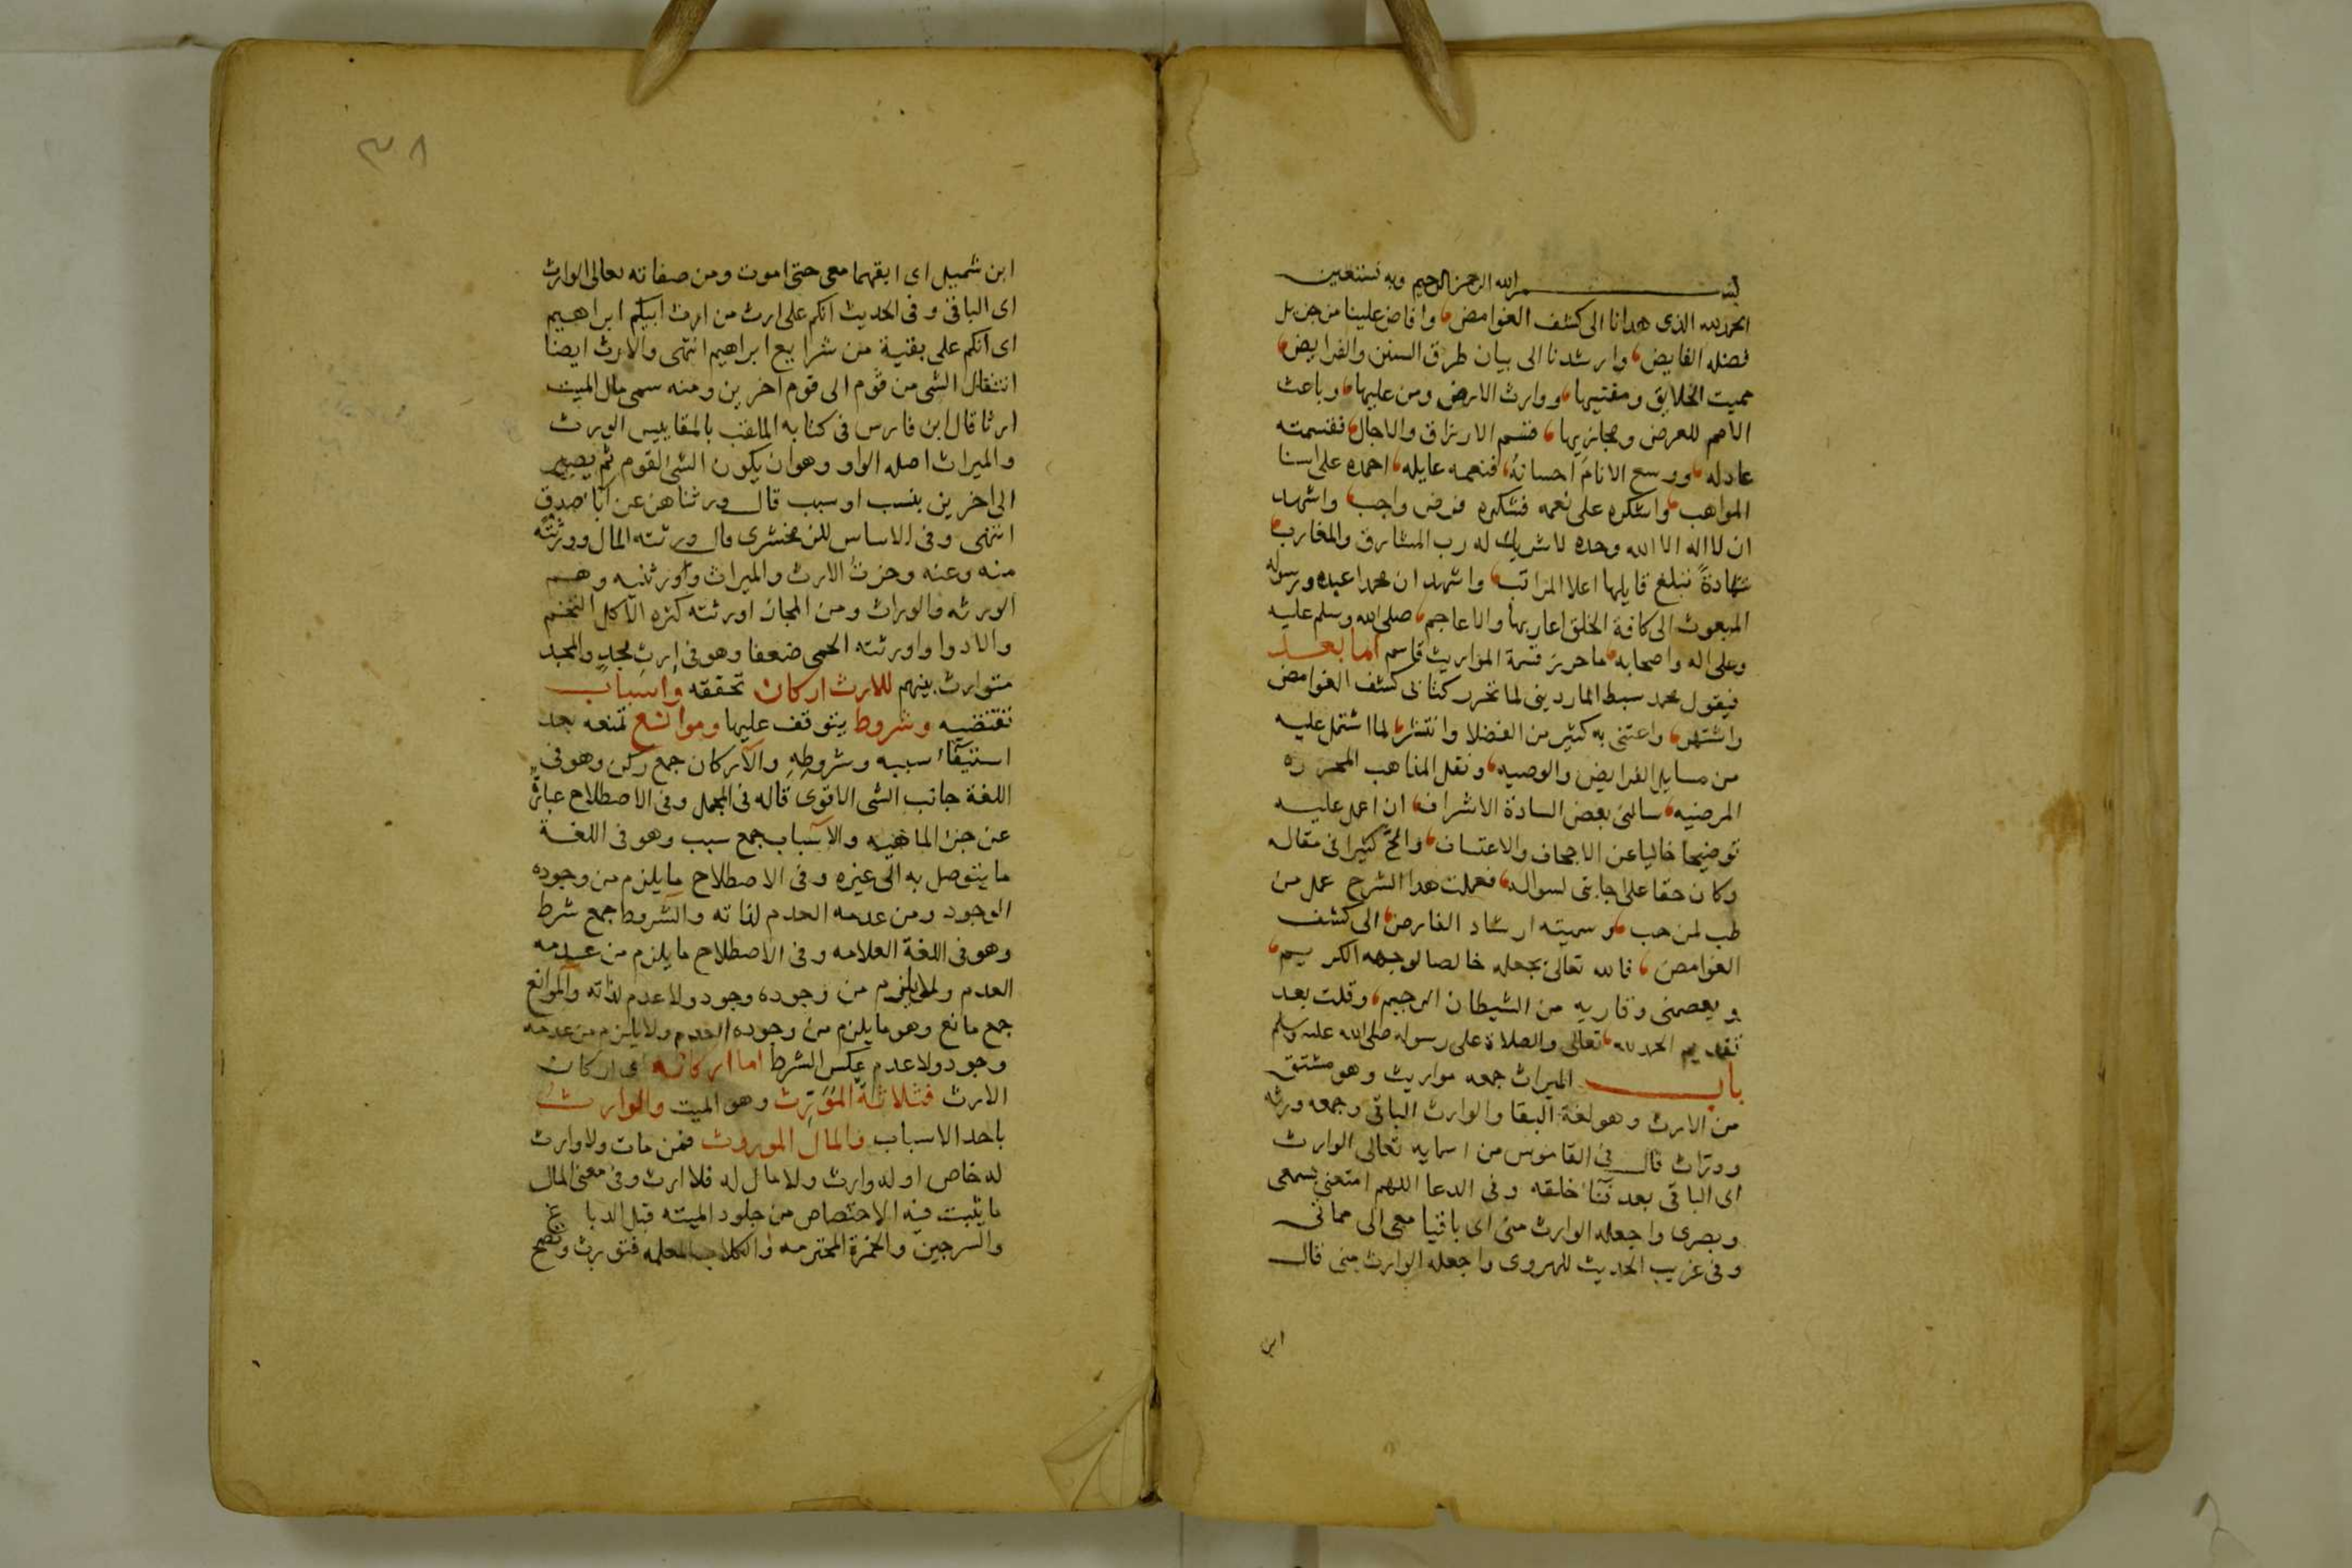 بسم الله الرحمن الرحيم وبه نستعين
الحمد لله الذى هدانا الى كشف الغوامض، وافاض علينا من جزيل
فضله الفايض، وارشدنا الى بيان طرق السنن والفرايض،
مميت الخلايق ومفنيها، ووارث الارض ومن عليها، وباعث
الامم للعرض ومجازيها، قسم الارزاق والاجال، فقسمته
عادله، ووسع الانام احسانه، فنعمه عايله، احمده على اسنا
المواهب، واشكره على نعمه فشكره فرض واجب، واشهد
ان لا اله الا الله وحده لا شريك له رب المشارق والمغارب،
شهادةً تبلغ قايلها اعلا المراتب، واشهد ان محمدا عبده ورسوله
المبعوث الى كافة الخلق اعاربها والاعاجم، صلى الله وسلم عليه
وعلى اله واصحابه، ما حرر قسمة المواريث قاسم اما بعد
فيقول محمد سبط الماردينى لما تحرر كتابى كشف الغوامض
واشتهر، واعتنى به كثير من الفضلا وانتشر، لما اشتمل عليه
من مسايل الفرايض والوصيه، ونقل المذاهب المحرره
المرضيه، سالنى بعض السادة الاشراف، ان اعمل عليه
توضيحا خاليا عن الاجحاف والاعتساف، والحّ كثيرا فى مقاله
وكان حقا على اجابتى لسواله، فعملت هذا الشرح عمل من
طب لمن حب، وسميته ارشاد الفارض، الى كشف
الغوامض، فالله تعالى يجعله خالصا لوجهه الكريم،
ويعصمنى وقاريه من الشيطان الرجيم، وقلت بعد
تقديم الحمد لله، تعالى والصلاة على رسوله صلى الله عليه وسلم
باب الميراث جمعه مواريث وهو مشتق
من الارث وهو لغة البقا والوارث الباقى وجمعه ورثه
ووراث قال فى القاموس من اسمايه تعالى الوارث
اى الباقى بعد فنا خلقه وفى الدعا اللهم امتعنى بسمعى
وبصرى واجعله الوارث منى اى باقيا معى الى مماتى
وفى غريب الحديث للهروى واجعله الوارث منى قال
ابن
٣٨
ابن شميل اى ابقهما معى حتى اموت ومن صفاته تعالى الوارث
اى الباقى وفى الحديث انكم على ارث من ارث ابيكم ابراهيم
اى انكم على بقية من شرايع ابراهيم انتهى والارث ايضا
انتقال الشى من قوم الى قوم اخرين ومنه سمى مال الميت
ارثا قال ابن فارس فى كتابه الملقب بالمقاييس الورث
والميراث اصله الواو وهو ان يكون الشى لقوم ثم يصير
الى اخرين بنسب او سبب قال ورثناهن عن آباء صدق
انتهى وفى الاساس للزمخشرى قال ورثته المال وورثته
منه وعنه وحزت الارث والميراث واورثنيه وهم
الورثه والوراث ومن المجاز اورثته كثره الاكل التخم
والادوا واورثته الحمى ضعفا وهو فى إرث مجد والمجد
متوارث بينهم للارث اركان تحققه واسباب
تقتضيه وشروط يتوقف عليها وموانع تمنعه بعد
استيفاء سببه وشروطه والاركان جمع ركن وهو فى
اللغة جانب الشى الاقوى قاله فى المجمل وفى الاصطلاح عبارة
عن جزء الماهيه والاسباب جمع سبب وهو فى اللغة
ما يتوصل به الى غيره وفى الاصطلاح ما يلزم من وجوده
الوجود ومن عدمه العدم لذاته والشروط جمع شرط
وهو فى اللغة العلامه وفى الاصطلاح ما يلزم من عدمه
العدم ولا يلزم من وجوده وجود ولا عدم لذاته والموانع
جمع مانع وهو ما يلزم من وجوده العدم ولا يلزم من عدمه
وجود ولا عدم عكس الشرط اما اركانه اى اركان
الارث فثلاثة المُؤَرِّث وهو الميت والوارث
باحد الاسباب والمال الموروث فمن مات ولا وارث
له خاص او له وارث ولا مال له فلا ارث وفى معنى المال
ما يثبت فيه الاختصاص من جلود الميته قبل الدباغ
والسرجين والخمرة المحترمه والكلاب المعلمه فتورث وتصح